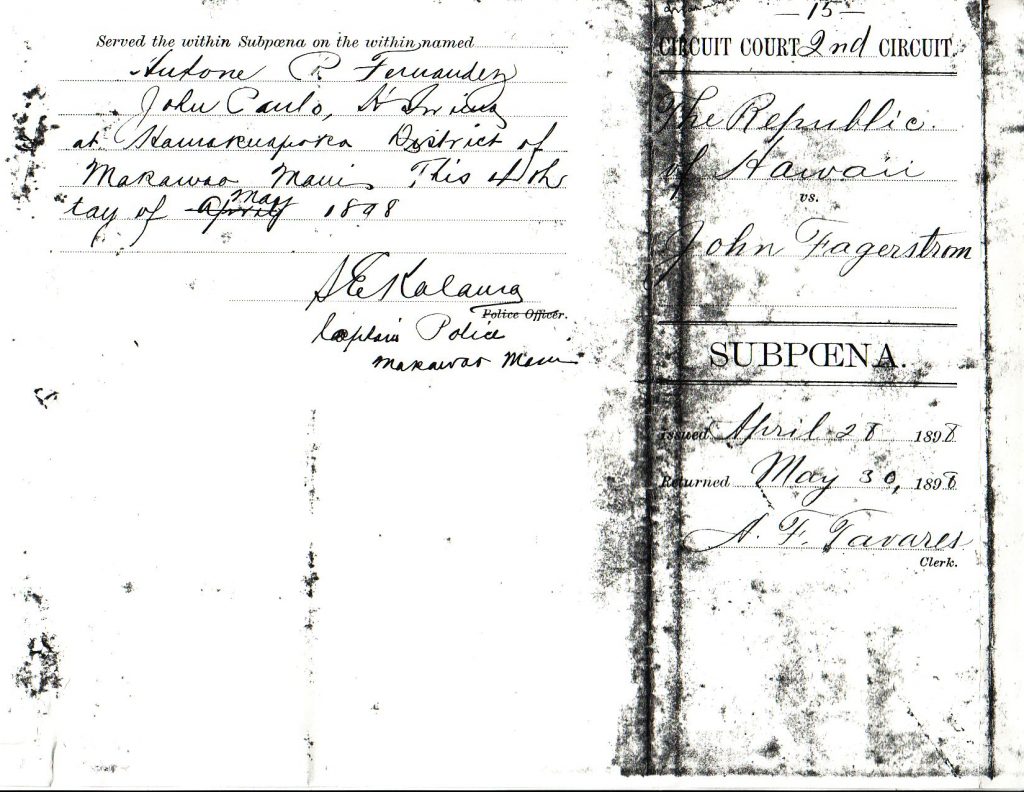 Served the within Subpœna on the within named
Antone R. Fernandez
John Paulo,
at Hamakuapoko District of
Makawao Maui This 4th
tay of April May 1898
S E Kalama
Police Officer.
Captain Police
Makawao Maui
— 15 —
CIRCUIT COURT 2nd CIRCUIT.
The Republic.
of Hawaii
vs.
John Fagerstrom
SUBPŒNA.
Issued April 28 1898
Returned May 30, 1898
A. F. Tavares
Clerk.